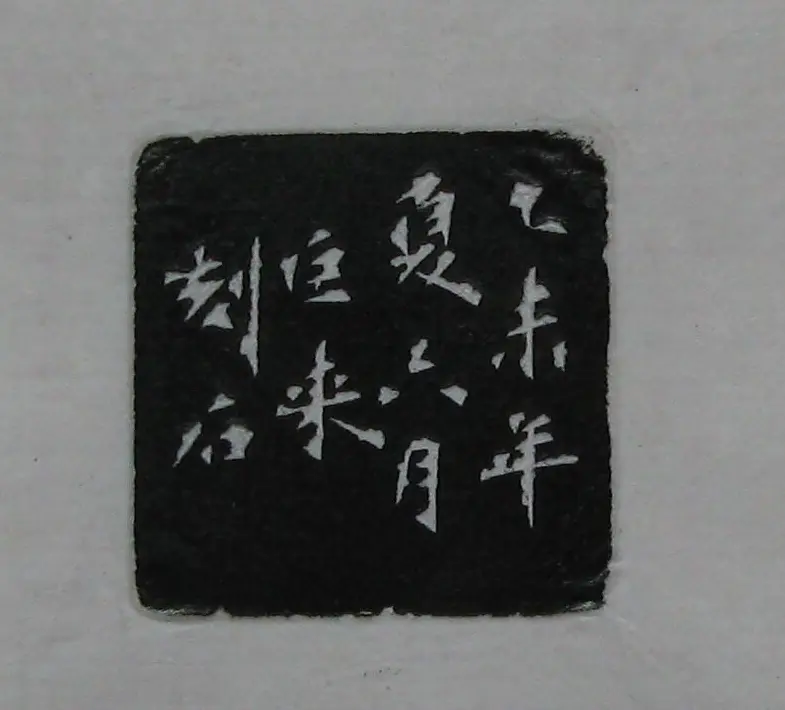 乙未年
夏六月
往来
刻石